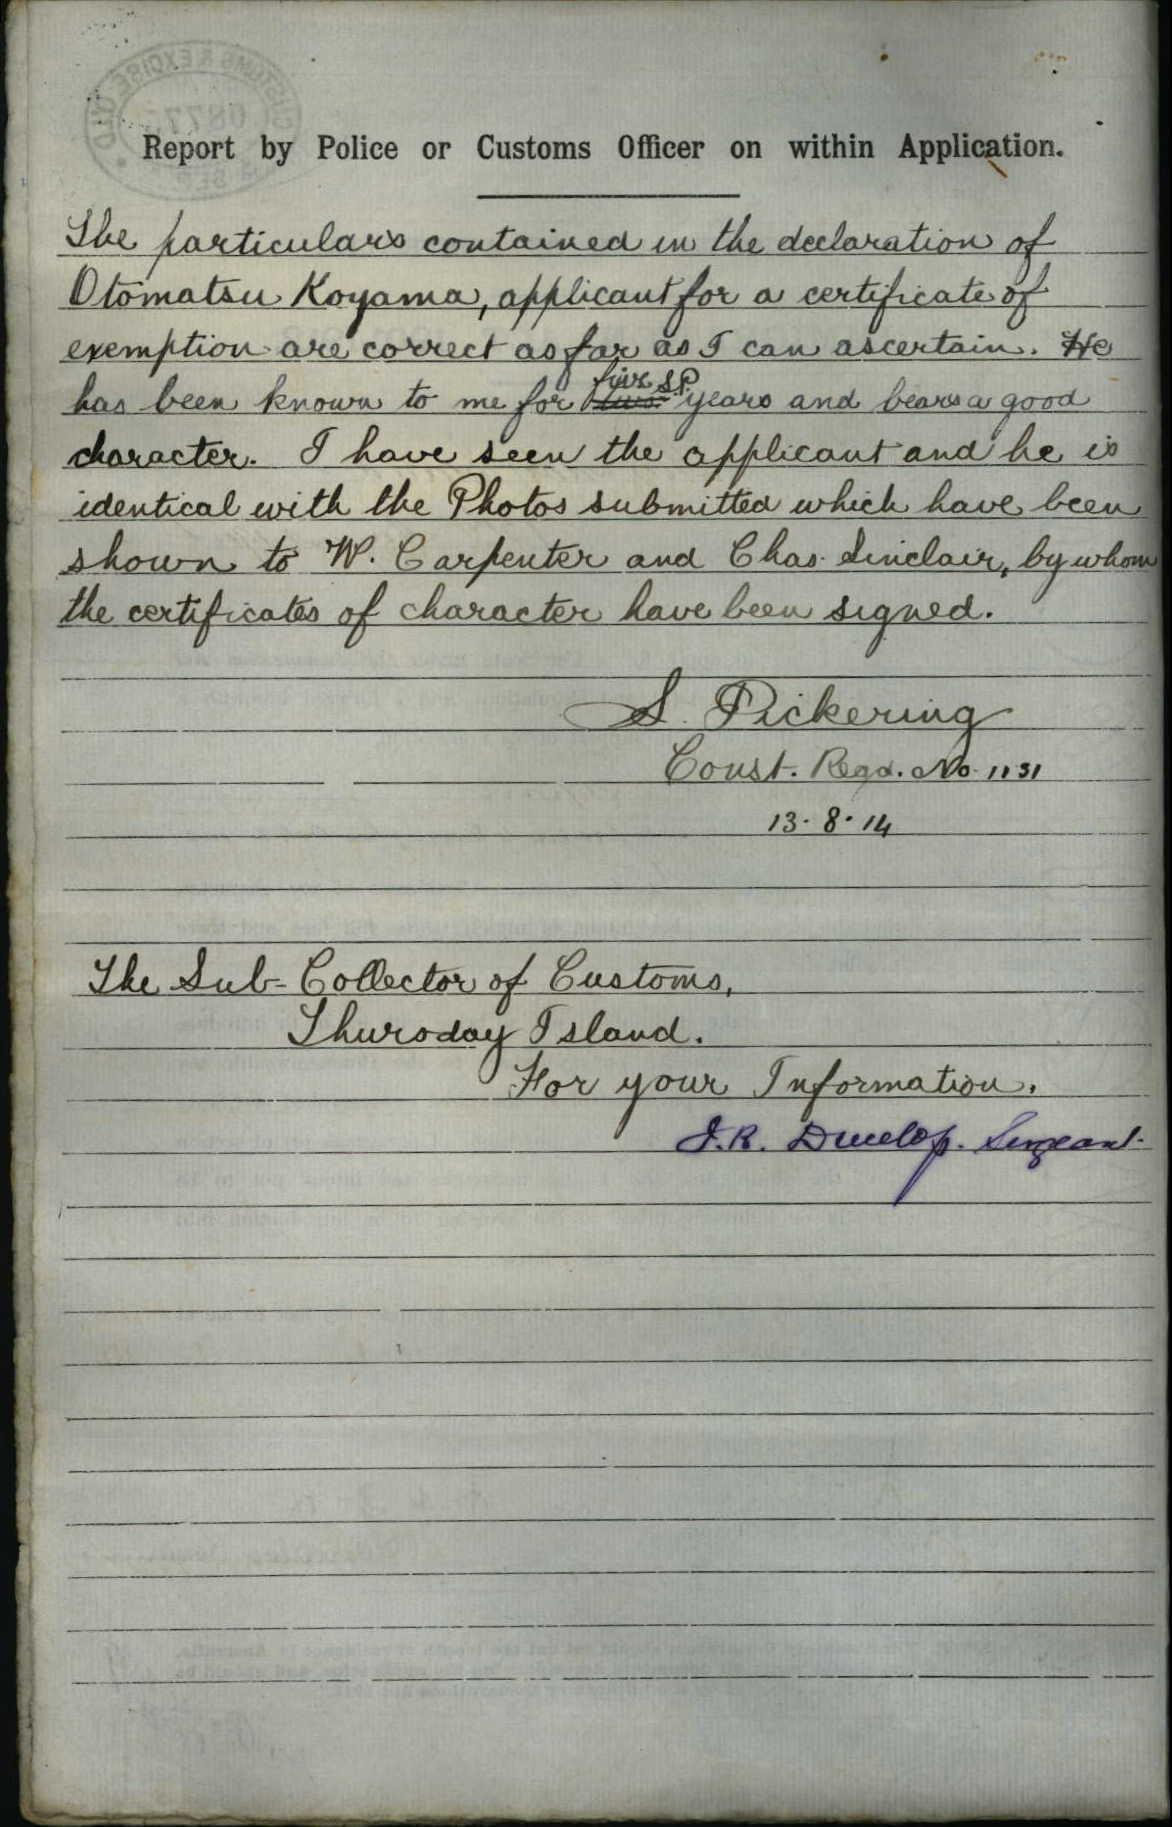 Report by Police or Customs Officer on within Application.
The particulars contained in the declaration of
Otomatsu Koyama, applicant for a certificate of
exemption are correct as far as I can ascertain. He
five S.P.
has been known to me for two years and bears a good
character. I have seen the applicant and he is
identical with the Photos submitted which have been
shown to W. Carpenter and Chas. Sinclair, by whom
the certificates of character have been signed.
S. Pickering
Const. Regd. No. 1131
13.8.14
The Sub-Collector of Customs,
Thursday Island.
For your Information.
J.R. Dunlop. Sergeant.